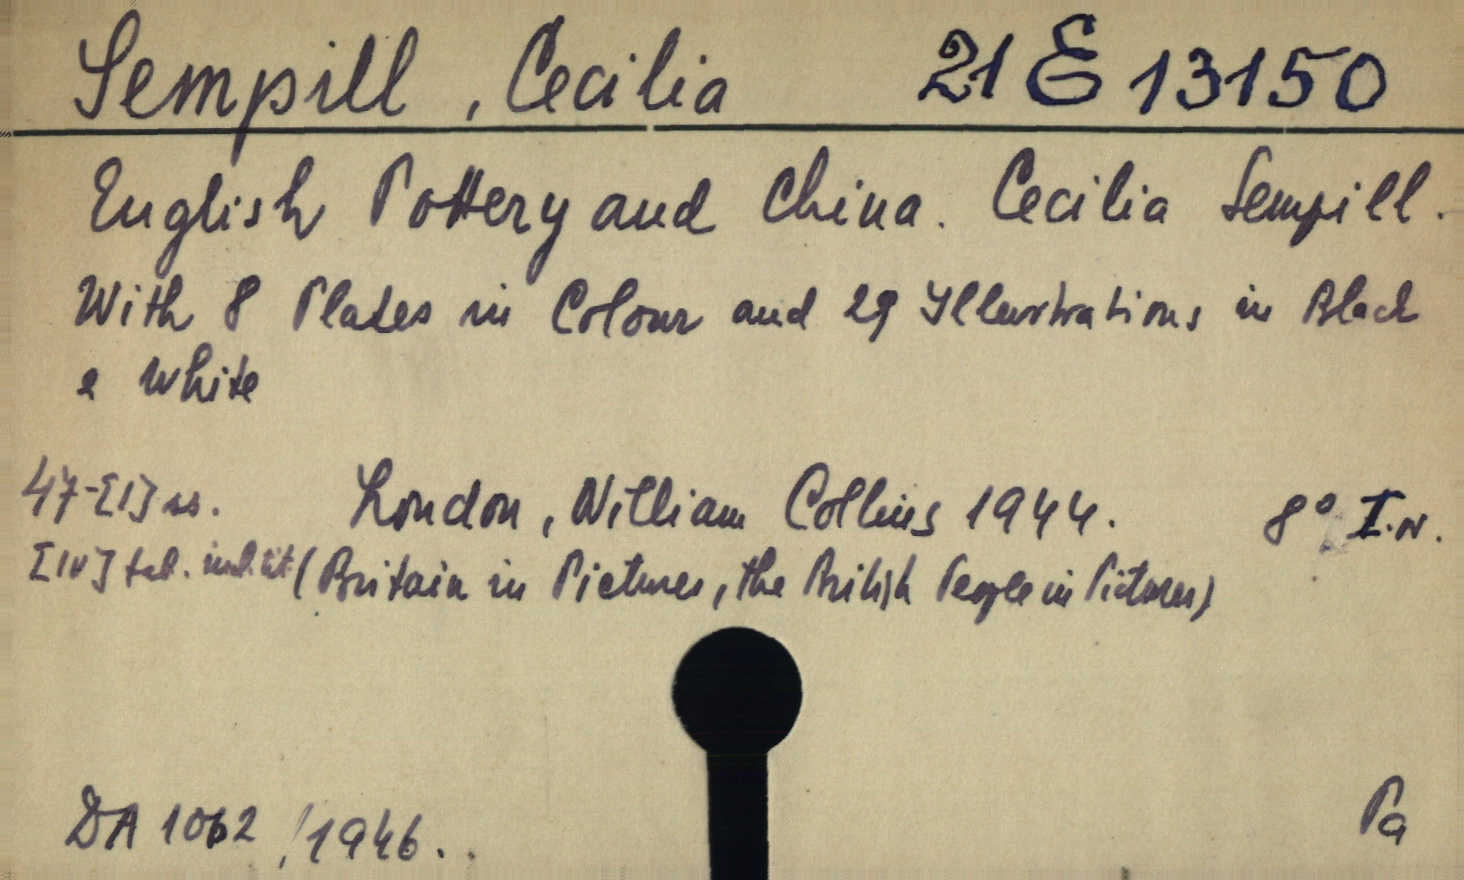 Sempill, Cecilia 21 E 13150
English Pottery and China. Cecilia Sempill.
With 8 Plates in Colour and 29 Illustrations in Black
& White
47-[1] ss. London, William Collins 1944. 8° I.N.
[IV] tab. (Britain in Pictures, the British People in Pictures)
DA 1062 /1946. Pa